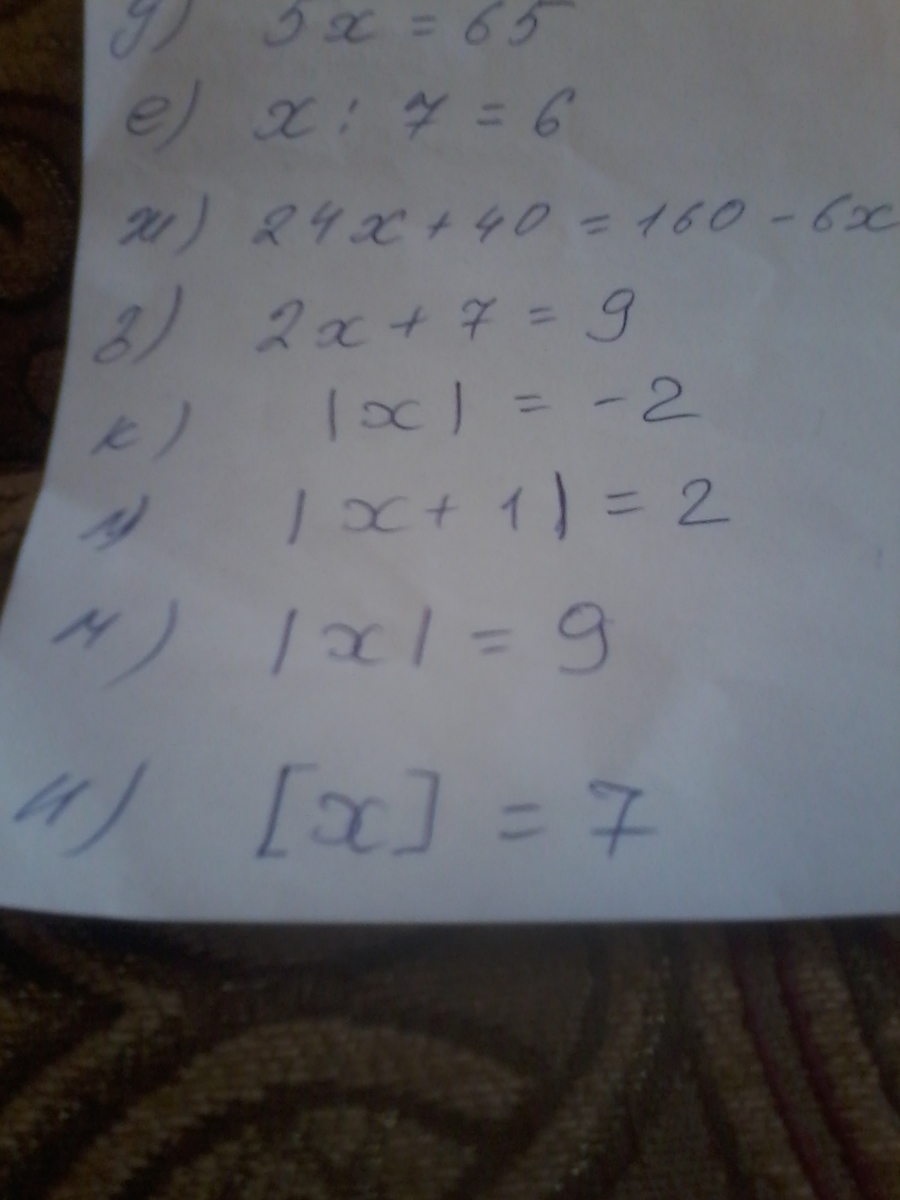 д) 5x = 65
е) x : 7 = 6
ж) 24x + 40 = 160 - 6x
з) 2x + 7 = 9
к) |x| = -2
л) |x + 1| = 2
м) |x| = 9
н) [x] = 7